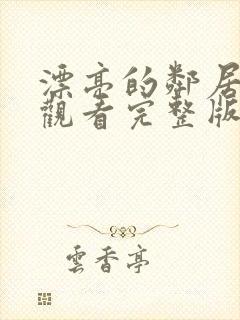 漂亮的鄰居
觀看完整版
雲香亭